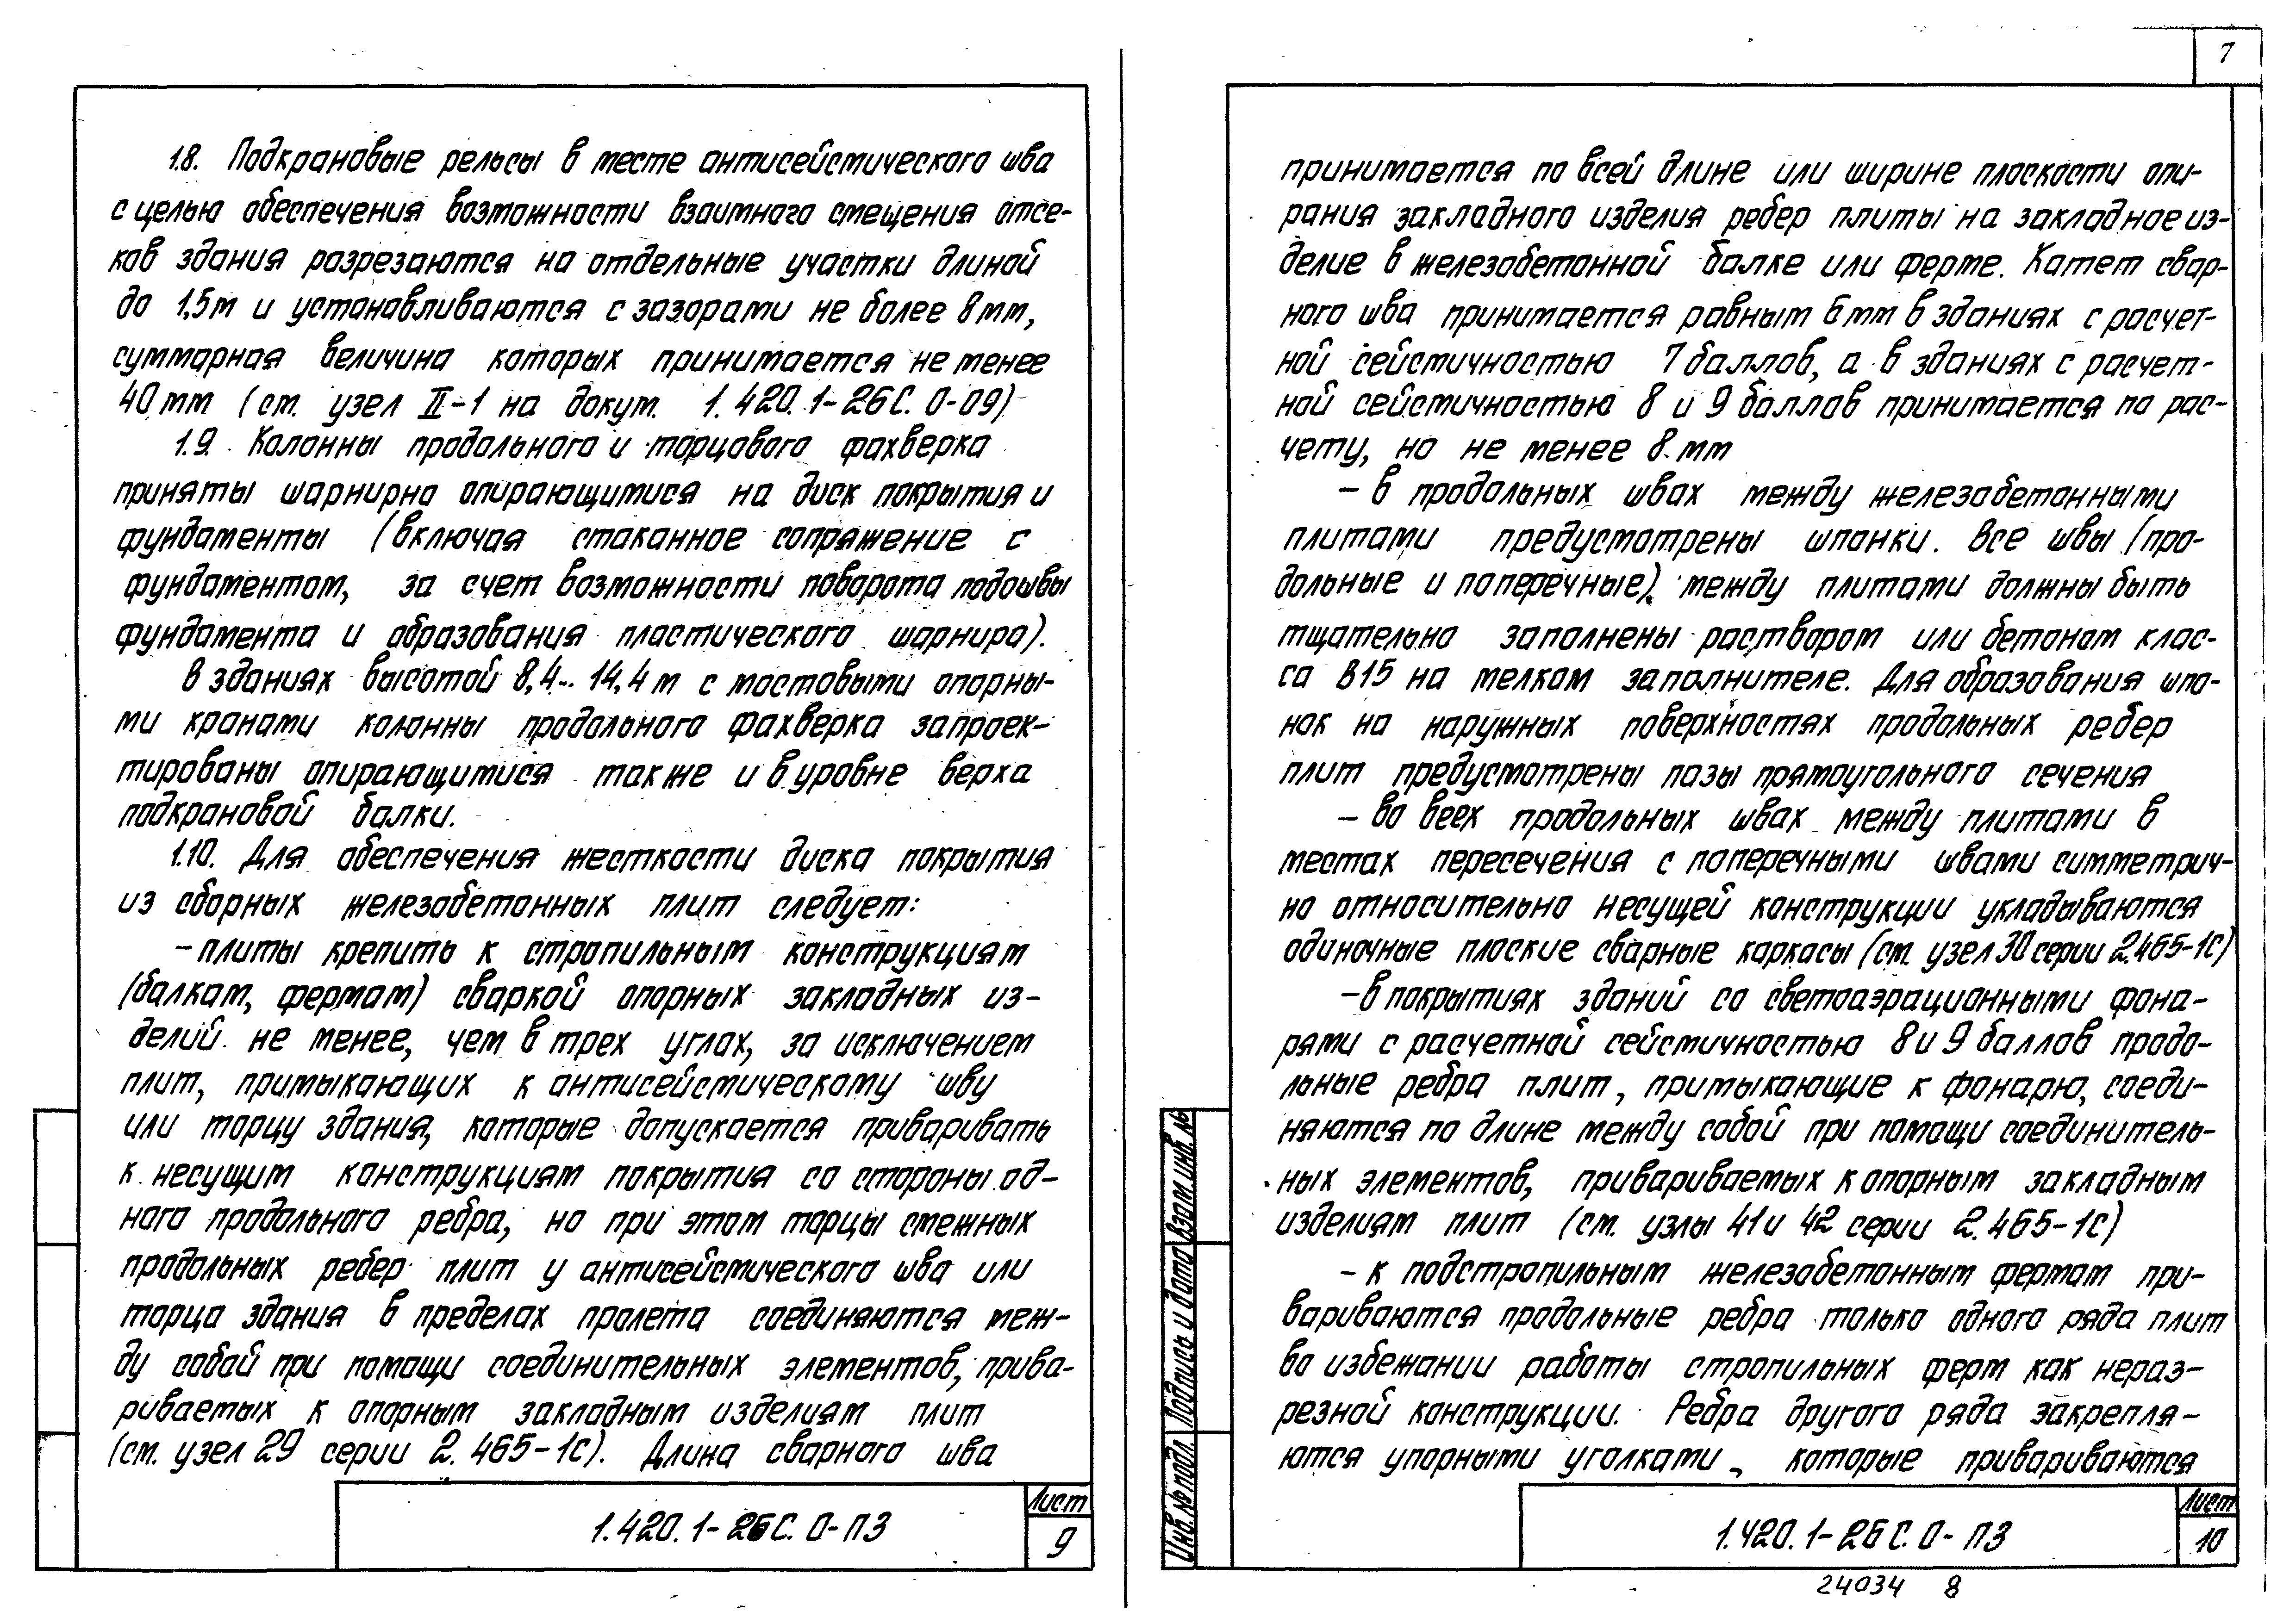 1.8. Подкрановые рельсы в месте антисейсмического шва
с целью обеспечения возможности взаимного смещения отсе-
ков здания разрезаются на отдельные участки длиной
до 1,5м и устанавливаются с зазорами не более 8 мм,
суммарная величина которых принимается не менее
40 мм (см. узел II-1 на докум. 1.420.1-26С.0-09)
1.9. Колонны продольного и торцового фахверка
приняты шарнирно опирающимися на диск покрытия и
фундаменты (включая стаканное сопряжение с
фундаментом, за счет возможности поворота подошвы
фундамента и образования пластического шарнира).
В зданиях высотой 8,4... 14,4 м с мостовыми опорны-
ми кранами колонны продольного фахверка запроек-
тированы опирающимися также и в уровне верха
подкрановой балки.
1.10. Для обеспечения жесткости диска покрытия
из сборных железобетонных плит следует:
- плиты крепить к стропильным конструкциям
(балкам, фермам) сваркой опорных закладных из-
делий не менее, чем в трех углах, за исключением
плит, примыкающих к антисейсмическому шву
или торцу здания, которые допускается приваривать
к несущим конструкциям покрытия со стороны од-
ного продольного ребра, но при этом торцы смежных
продольных ребер плит у антисейсмического шва или
торца здания в пределах пролета соединяются меж-
ду собой при помощи соединительных элементов, прива-
риваемых к опорным закладным изделиям плит
(см. узел 29 серии 2.465-1С). Длина сварного шва
1.420.1-26С.0-ПЗ
Лист
9
7
принимается по всей длине или ширине плоскости опи-
рания закладного изделия ребер плиты на закладное из-
делие в железобетонной балке или ферме. Катет свар-
ного шва принимается равным 6 мм в зданиях с расчет-
ной сейсмичностью 7 баллов, а в зданиях с расчет-
ной сейсмичностью 8 и 9 баллов принимается по рас-
чету, но не менее 8 мм
- в продольных швах между железобетонными
плитами предусмотрены шпонки. Все швы (про-
дольные и поперечные) между плитами должны быть
тщательно заполнены раствором или бетоном клас-
са В15 на мелком заполнителе. Для образования шпо-
нок на наружных поверхностях продольных ребер
плит предусмотрены пазы прямоугольного сечения
- во всех продольных швах между плитами в
местах пересечения с поперечными швами симметрич-
но относительно несущей конструкции укладываются
одиночные плоские сварные каркасы (см. узел 30 серии 2.465-1С)
- в покрытиях зданий со светоаэрационными фона-
рями с расчетной сейсмичностью 8 и 9 баллов продо-
льные ребра плит, примыкающие к фонарю, соеди-
няются по длине между собой при помощи соединитель-
ных элементов, привариваемых к опорным закладным
изделиям плит (см. узлы 41 и 42 серии 2.465-1С)
- к подстропильным железобетонным фермам при-
вариваются продольные ребра только одного ряда плит
во избежании работы стропильных ферм как нераз-
резной конструкции. Ребра другого ряда закрепля-
ются упорными уголками, которые привариваются
Взам. инв. №
Подпись и дата
Инв. № подл.
1.420.1-26С.0-ПЗ
Лист
10
24034 8